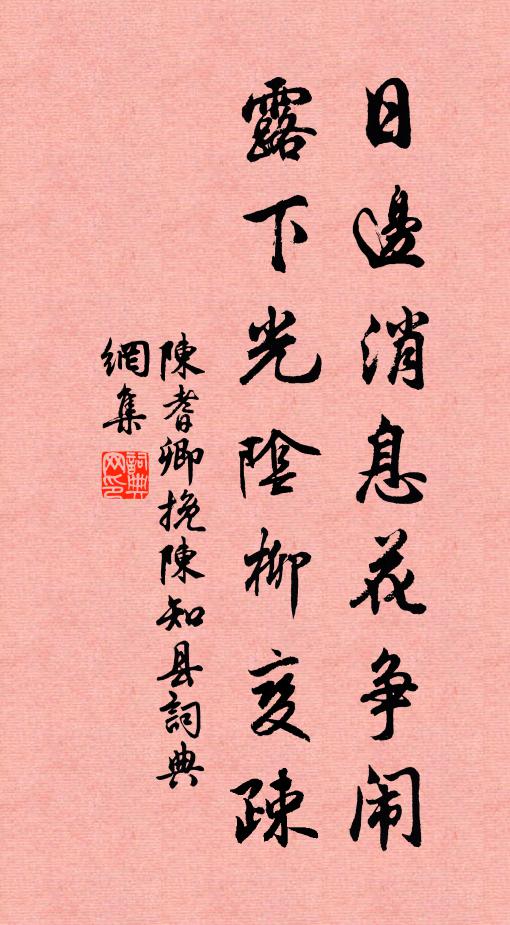 日邊消息花争闹
露下光陰柳变疎
陳耆卿挽陳知县詞典
網集
詞典网印